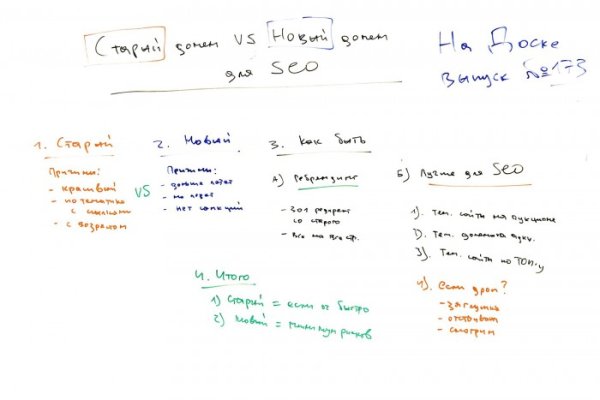 Старый домен VS Новый домен
для SEO
На Доске
выпуск №173
1. Старый
Причины:
- красивый
- по тематике
с ссылками
- с возрастом
VS
2. Новый
Причины:
- дольше
- нет санкций
3. Как быть
А) Ребрендинг
- 301 редирект
со старого
- все на все стр.
Б) Лучше для SEO
1). Тем. сайты на аукционе
2). Тем. домены
3). Тем. сайты по ТОП-у
4). если дроп?
- загрузить
- отстоять
- смотрим
4. Итого
1) Старый = если быстро
2) Новый = минимум рисков